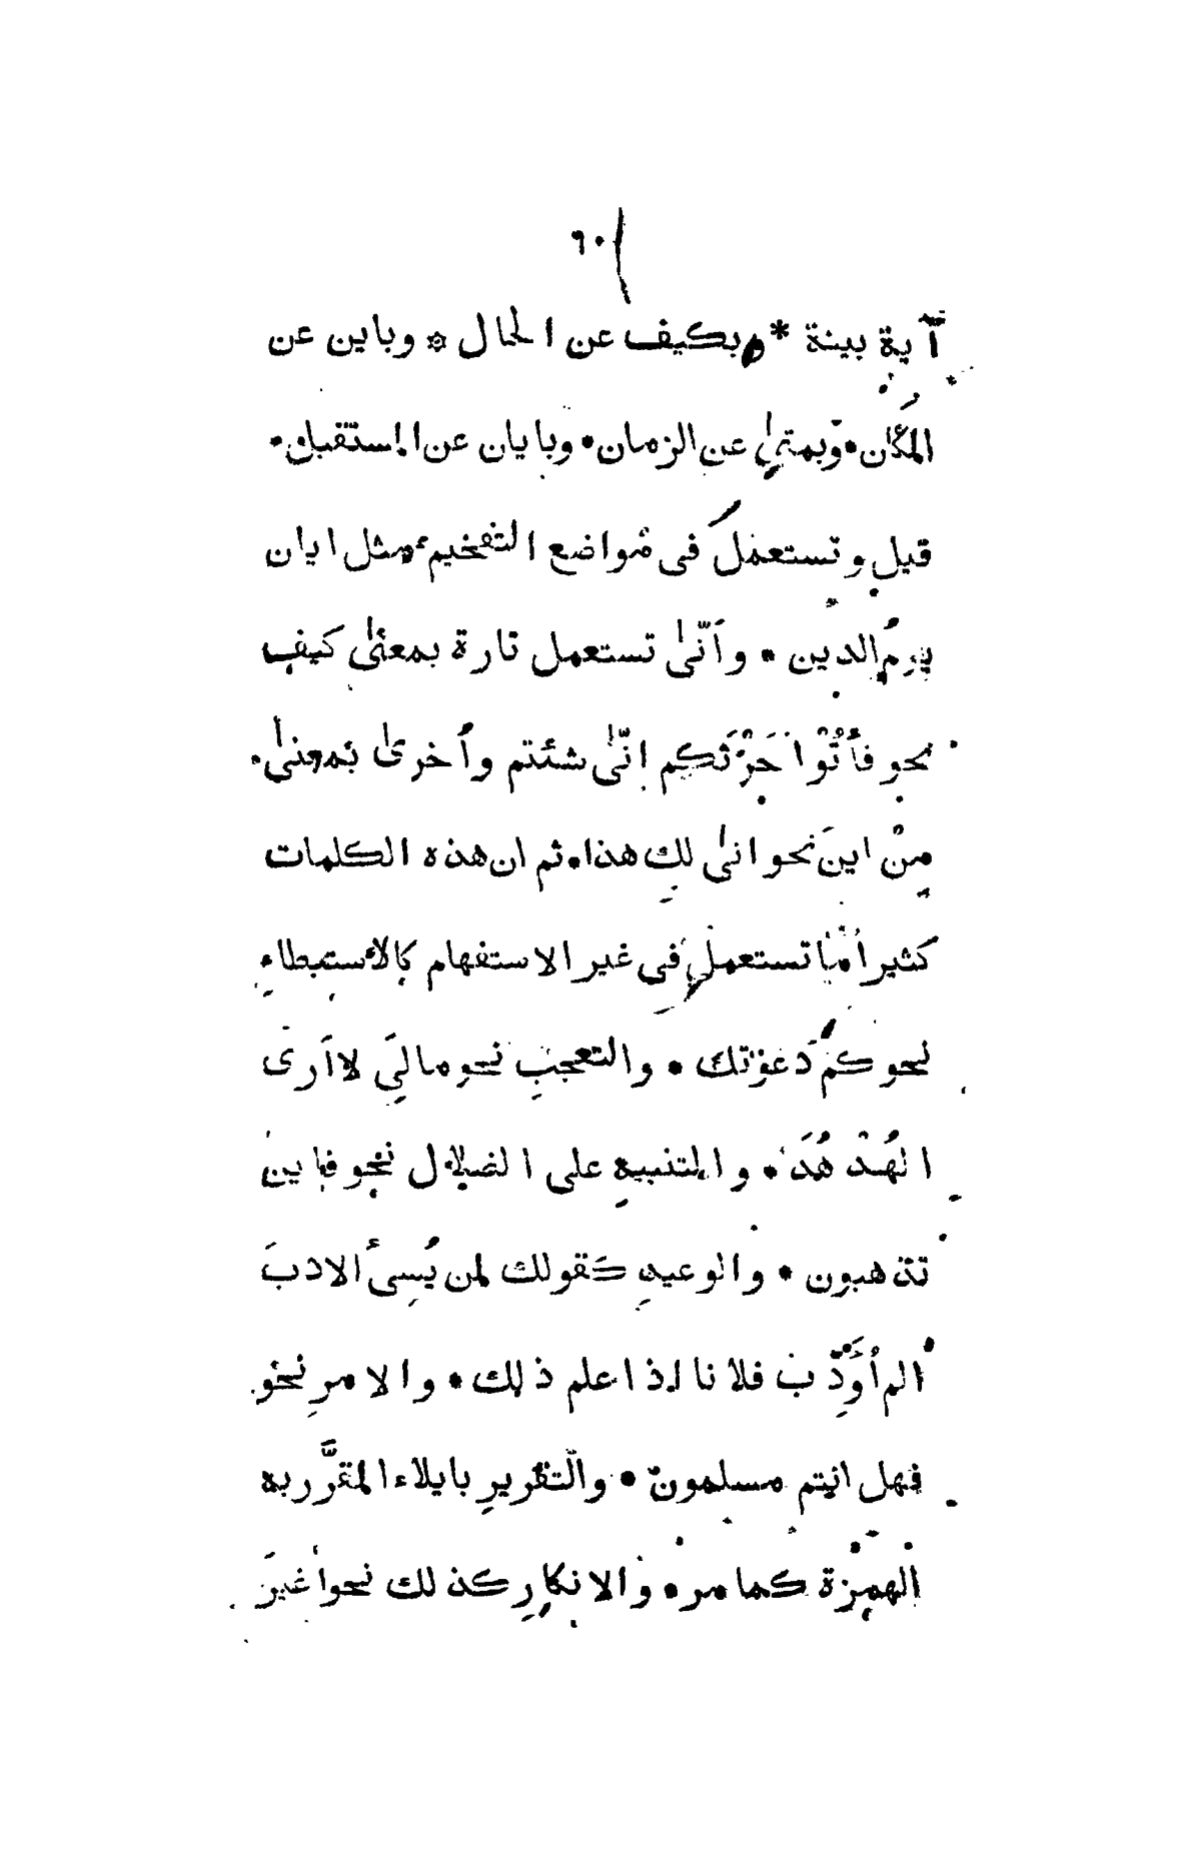 ٦٠
آية بينة * وبكيف عن الحال * وباين عن
المكان • وبمتىٰ عن الزمان • وبايان عن المستقبل •
قيل وتستعمل فى مواضع التفخيم مثل ايان
يومُ الدين • وأنّىٰ تستعمل تارة بمعنىٰ كيف
نحو فأْتُوْا حَرْثَكم انّىٰ شئتم وأخرىٰ بمعنىٰ
مِنْ اينَ نحو انىٰ لكِ هذا • ثم ان هذه الكلمات
كثيرا مّا تستعمل فى غير الاستفهام كالاستبطاءِ
نحو كمْ دَعَوْتك • والتعجبِ نحو مالىَ لا اَرى
الهُدْهُدَ • والتنبيهِ على الضلال نحو فاين
تذهبون • والوعيدِ كقولك لمن يُسِئُ الادبَ
الم أُؤَدِّبْ فلانا اذا علم ذلك • والامرِ نحو
فهل انتم مسلمون • والتقريرِ بايلاء المقرَّر به
الهمزة كما مر • والانكارِ كذلك نحو اغيرَ